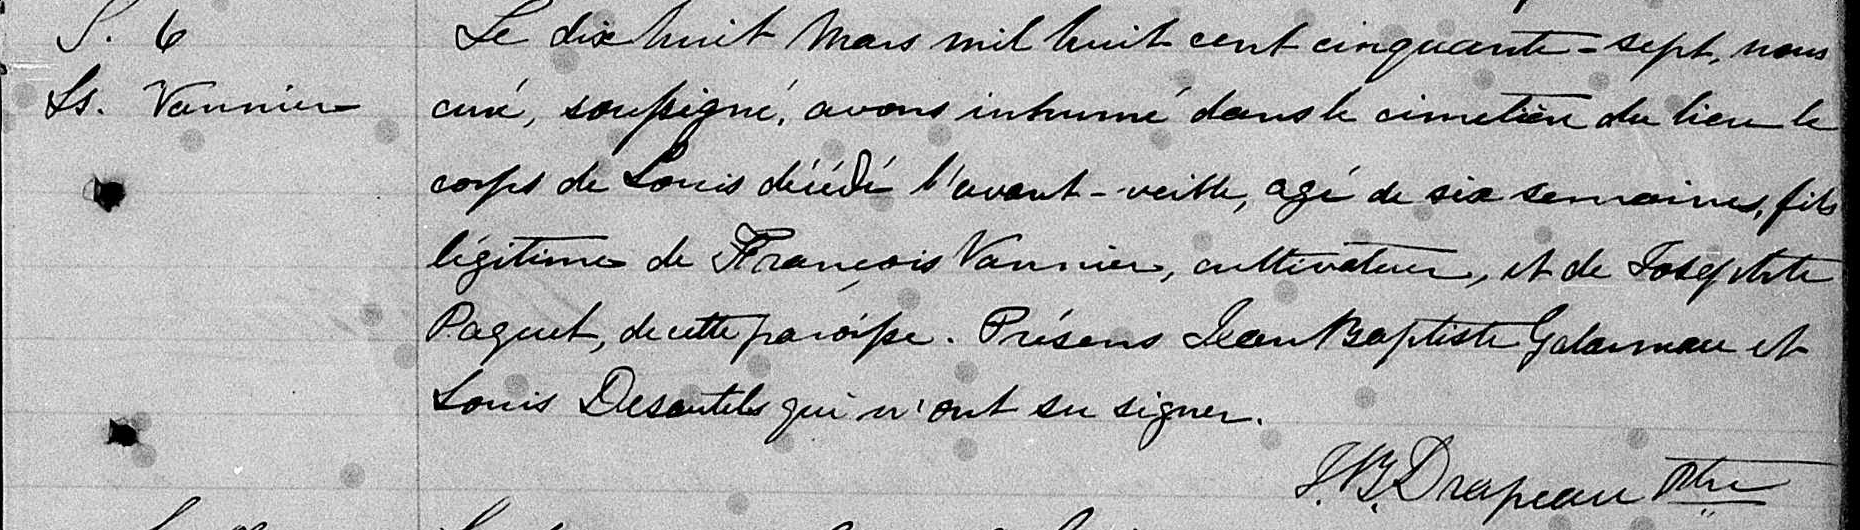 S. 6
Ls. Vannier
Le dix huit Mars mil huit cent cinquante-sept, nous
curé, soussigné, avons inhumé dans le cimetière du lieu le
corps de Louis décédé l'avant-veille, agé de six semaines, fils
légitime de François Vannier, cultivateur, et de Josephte
Paquet, de cette paroisse. Présens Jean Baptiste Galarneau et
Louis Desautels qui n'ont su signer.
J. B. Drapeau Ptre